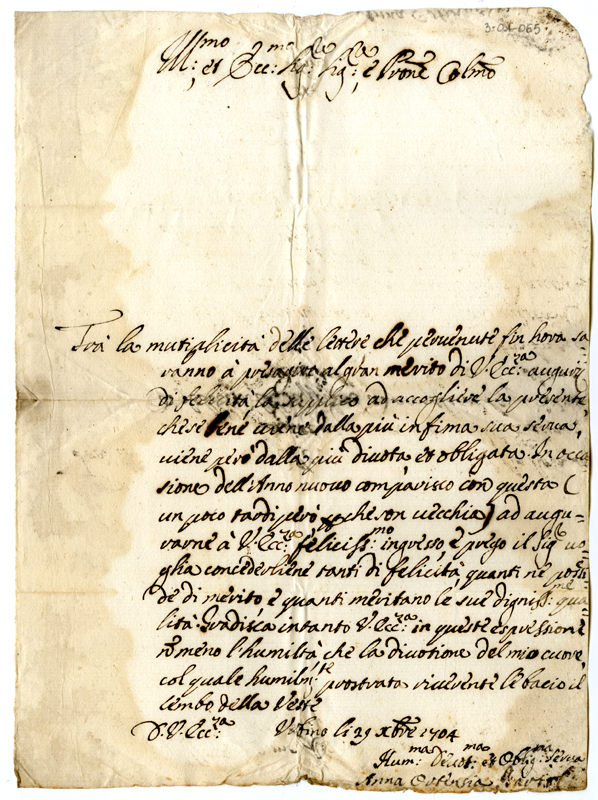 3-01-065
Ill:mo et Ecc:ma Sig:re Sig:re e Prone Colmo
Trà la mutiplicità delle lettere che pervenute fin hora sa
ranno à presagire al gran merito di V. Ecc:za augurij
di felicità, la supplico ad accogliere la presente
che se bene viene dalla più infima sua serva,
viene però dalla più divota et obligata. In occa
sione dell'Anno nuovo comparisco con questa (
un poco tardi però che son vecchia) ad augu-
rarne à V. Ecc:za feliciss:mo ingresso, e prego il Sig:re vo-
glia concederliene tanti di felicità, quanti ne possie
de di merito e quanti meritano le sue digniss:me qua
lità. Gradisca intanto V. Ecc:za in queste espressioni
nõ meno l'humiltà che la divotione del mio cuore,
col quale humilm:te prostrata riverente le bacio il
lembo della Veste
D. V. Ecc:za Urbino li 29 xbre 1704
Hum:ma Devot:ma et Oblig:ma serva
Anna Ortensia